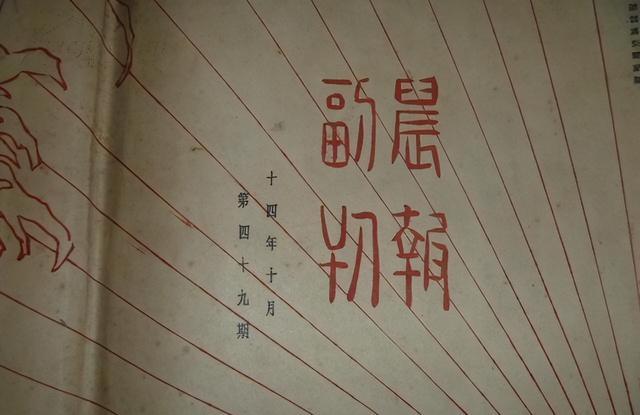 晨報
副刊
十四年十月
第四十九期